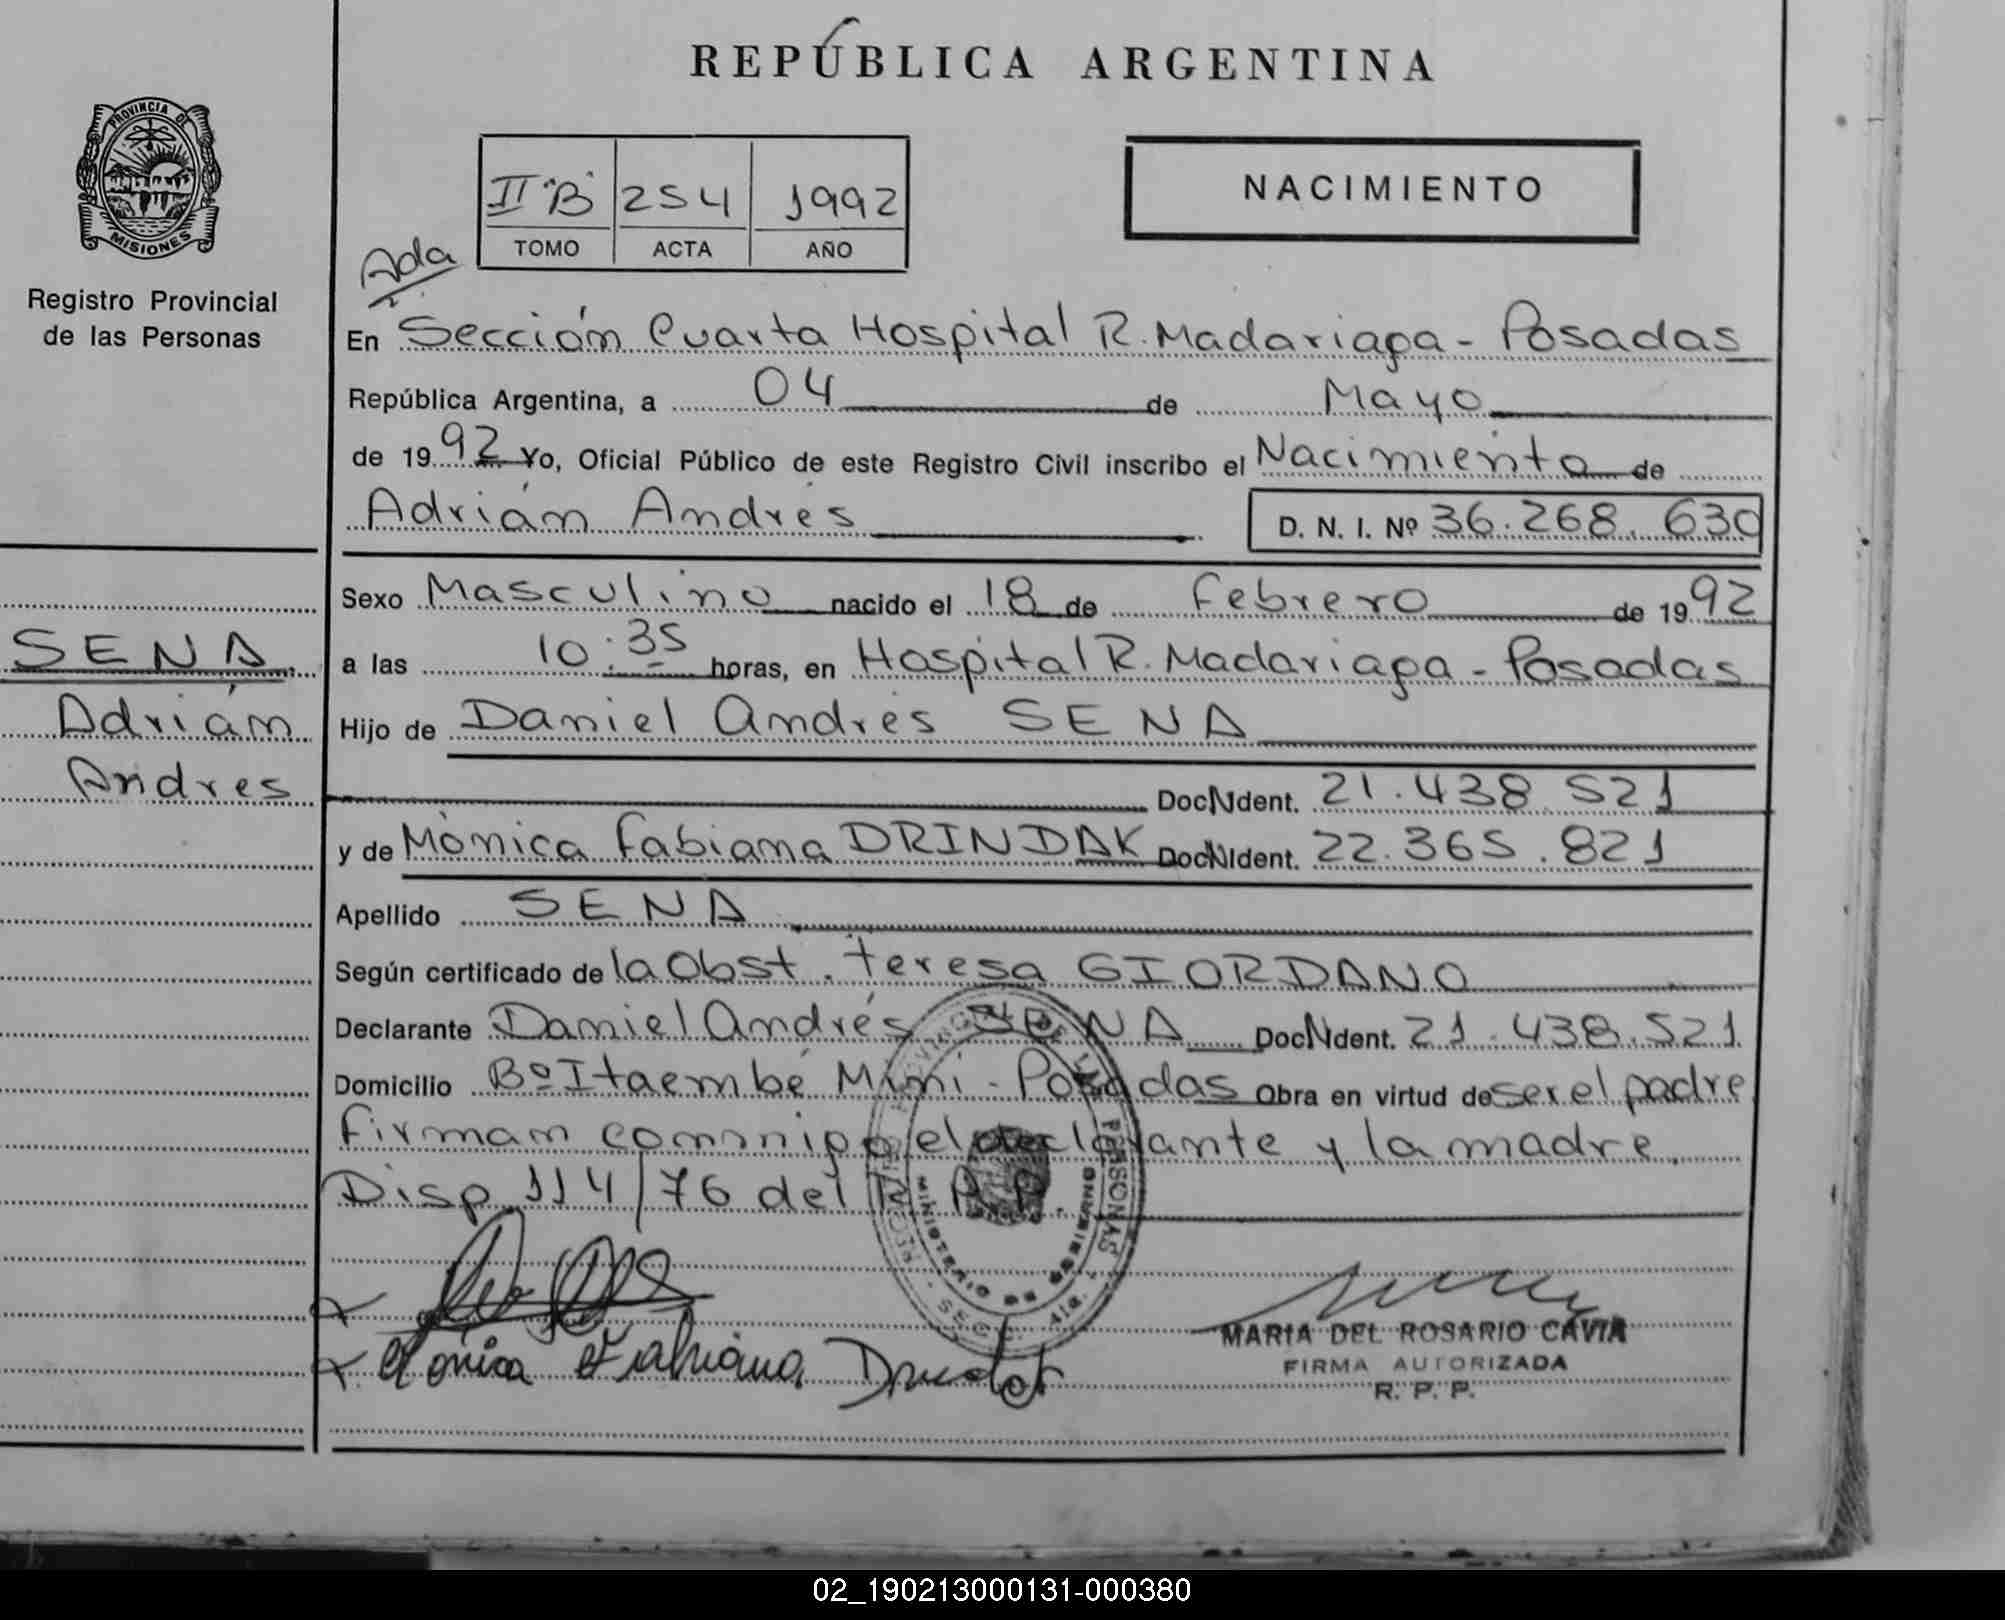 REPÚBLICA ARGENTINA
PROVINCIA DE
MISIONES
Registro Provincial
de las Personas
II "B" 254 1992
TOMO ACTA AÑO
NACIMIENTO
Ada
En Sección Cuarta Hospital R. Madariaga - Posadas
República Argentina, a 04 de Mayo
de 1992 Yo, Oficial Público de este Registro Civil inscribo el Nacimiento de
Adrián Andrés D. N. I. Nº 36.268.630
Sexo Masculino nacido el 18 de Febrero de 1992
SENA
a las 10:35 horas, en Hospital R. Madariaga - Posadas
Adrián
Hijo de Daniel Andrés SENA
Andres
Doc. N Ident. 21.438.521
y de Mónica Fabiana DRINDAK Doc. N Ident. 22.365.821
Apellido SENA
Según certificado de la Obst. Teresa GIORDANO
Declarante Daniel Andrés SENA Doc. N Ident. 21.438.521
Domicilio Bº Itaembé Miní - Posadas Obra en virtud de ser el padre
Firman conmigo el declarante y la madre.
Disp. 114/76 del R.P.P.
PROVINCIAL DE LAS PERSONAS
MINISTERIO DE GOBIERNO
SECC. 4ta.
Mónica Fabiana
MARIA DEL ROSARIO CAVIA
FIRMA AUTORIZADA
R. P. P.
02_190213000131-000380